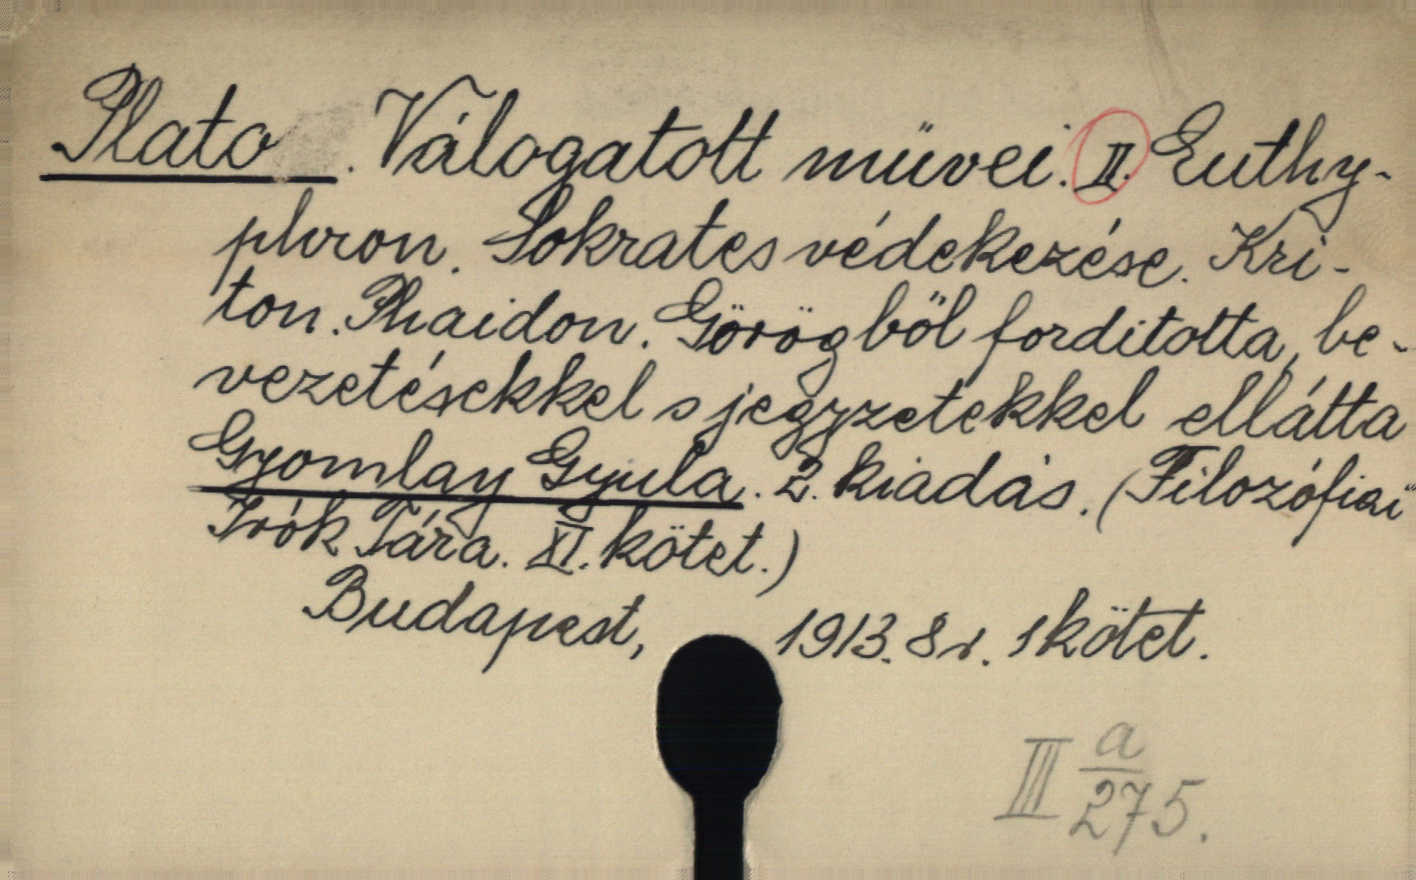 Plato. Válogatott müvei. II. Euthy-
phron. Sokrates védekezése. Kri-
ton. Phaidon. Görögből forditotta, be-
vezetésekkel s jegyzetekkel ellátta
Gyomlay Gyula. 2. kiadás. (Filozófiai
Irók Tára. XI. kötet.)
Budapest, 1913. 8r. 1 kötet.
III a/275.